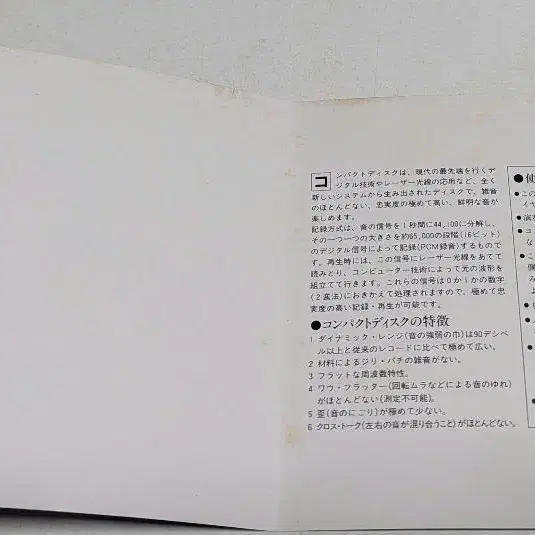 コンパクトディスクは、現代の最先端を行くデ
ジタル技術やレーザー光線の応用など、全く
新しいシステムから生み出されたディスクで、雑音
のほとんどない、忠実度の極めて高い、鮮明な音が
楽しめます。
記録方式は、音の信号を1秒間に44,100に分解し、
その一つ一つの大きさを約65,000の段階(16ビット)
のデジタル信号によって記録(PCM録音)するもので
す。再生時には、この信号にレーザー光線をあてて
読みとり、コンピューター技術によって元の波形を
組立てて行きます。これらの信号は0か1かの数字
(2進法)におきかえて処理されますので、極めて忠
実度の高い記録・再生が可能です。
●コンパクトディスクの特徴
1 ダイナミック・レンジ(音の強弱の巾)は90デシベ
ル以上と従来のレコードに比べて極めて広い。
2 材料によるジリ・パチの雑音がない。
3 フラットな周波数特性。
4 ワウ・フラッター(回転ムラなどによる音のゆれ)
がほとんどない(測定不可能)。
5 歪(音のにごり)が極めて少ない。
6 クロス・トーク(左右の音が混り合うこと)がほとんどない。
●使
●この
イヤ
●演
●コ
な
●こ